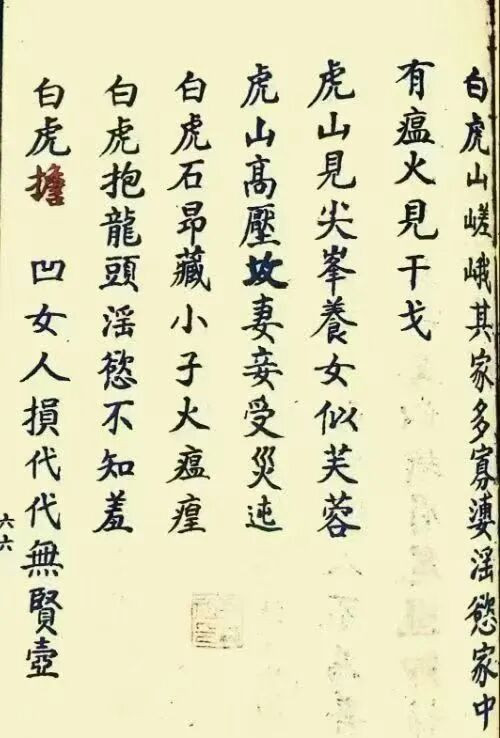 白虎山嵯峨其家多寡婆淫慾家中
有瘟火見干戈
虎山見尖峯養女似芙蓉
虎山高壓故妻妾受災迍
白虎石昂藏小子火瘟㾮
白虎抱龍頭淫慾不知羞
白虎擔 凹女人損代代無賢壺
六六